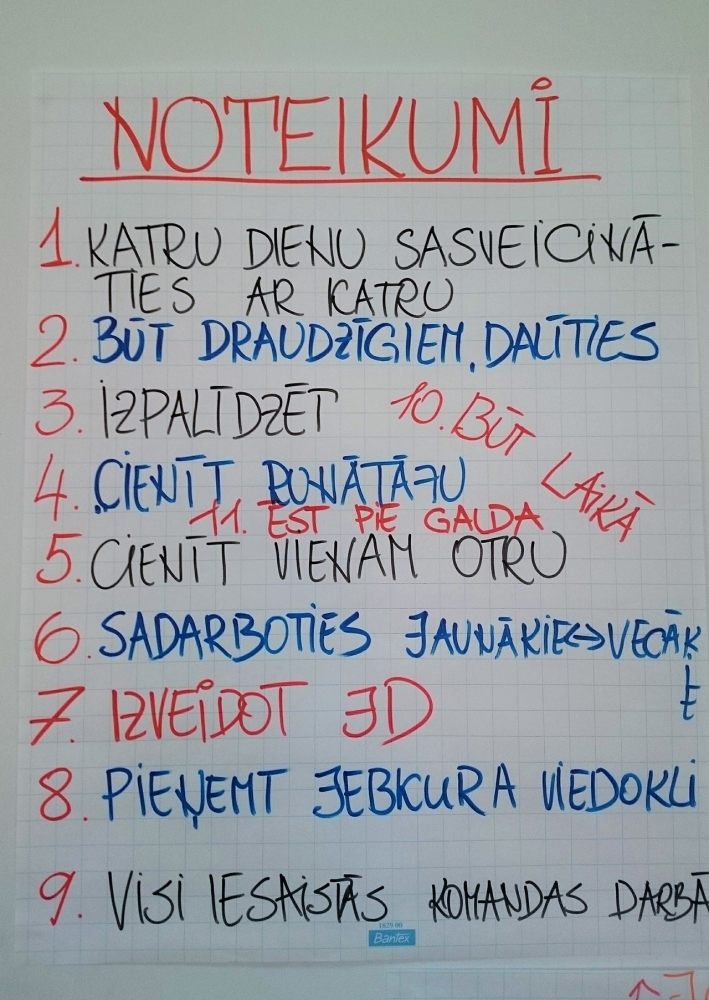 NOTEIKUMI
1. KATRU DIENU SASVEICINĀ-
TIES AR KATRU
2. BŪT DRAUDZĪGIEM, DALĪTIES
3. IZPALĪDZĒT
10. BŪT LAIKĀ
4. CIENĪT RUNĀTĀJU
11. EST PIE GALDA
5. CIENĪT VIENAM OTRU
6. SADARBOTIES JAUNĀKIE↔VECĀK
7. IZVEIDOT JD
8. PIEŅEMT JEBKURA VIEDOKLI
9. VISI IESAISTĀS KOMANDAS DARBĀ
1829 00
Bantex